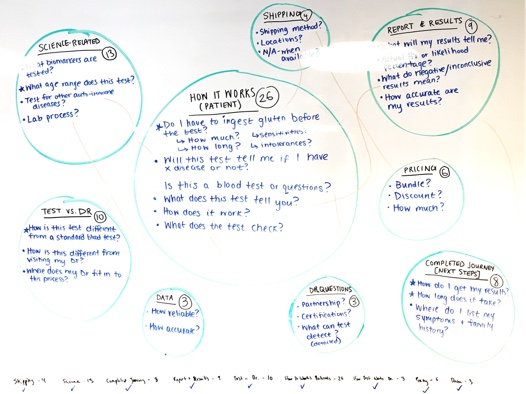 SCIENCE-RELATED
13
biomarkers are
tested?
*What age range does this test?
• Test for other auto-immune
diseases?
• Lab process?
SHIPPING
4
• Shipping method?
• Locations?
• N/A-when
REPORT & RESULTS
9
will my results tell me?
or likelihood
• What do negative/inconclusive
results mean?
• How accurate are
my results?
HOW IT WORKS
(PATIENT)
26
*Do I have to ingest gluten before
the test?
↳ How much?
↳ sensitivities
↳ How long?
↳ intolerances?
• Will this test tell me if I have
x disease or not?
Is this a blood test or questions?
• What does this test tell you?
• How does it work?
• What does the test check?
PRICING
6
• Bundle?
• Discount?
• How much?
TEST VS. DR
10
*How is this test different
from a standard blood test?
• How is this different from
visiting my Dr?
• Where does my Dr fit in to
this process?
DATA
3
• How reliable?
• How accurate?
DR. QUESTIONS
3
• Partnership?
• Certifications?
• What can test
detect?
COMPLETED JOURNEY
[NEXT STEPS]
8
*How do I get my results?
*How long does it take?
• Where do I list my
symptoms + family
history?
Shipping - 4
Science - 13
Completed Journey - 8
Report + Results - 9
Test vs Dr. - 10
How It Works Patients - 26
- 3
Pricing - 6
Data - 3